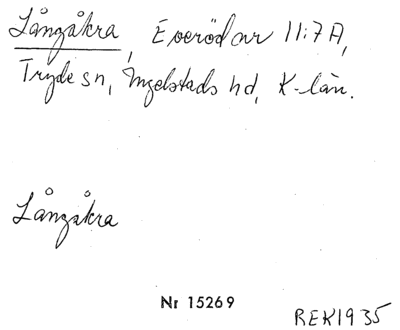 Långåkra, Everöd nr 11:7A,
Tryde sn, Ingelstads hd, K-län.
Långåkra
Nr 15269
REK1935